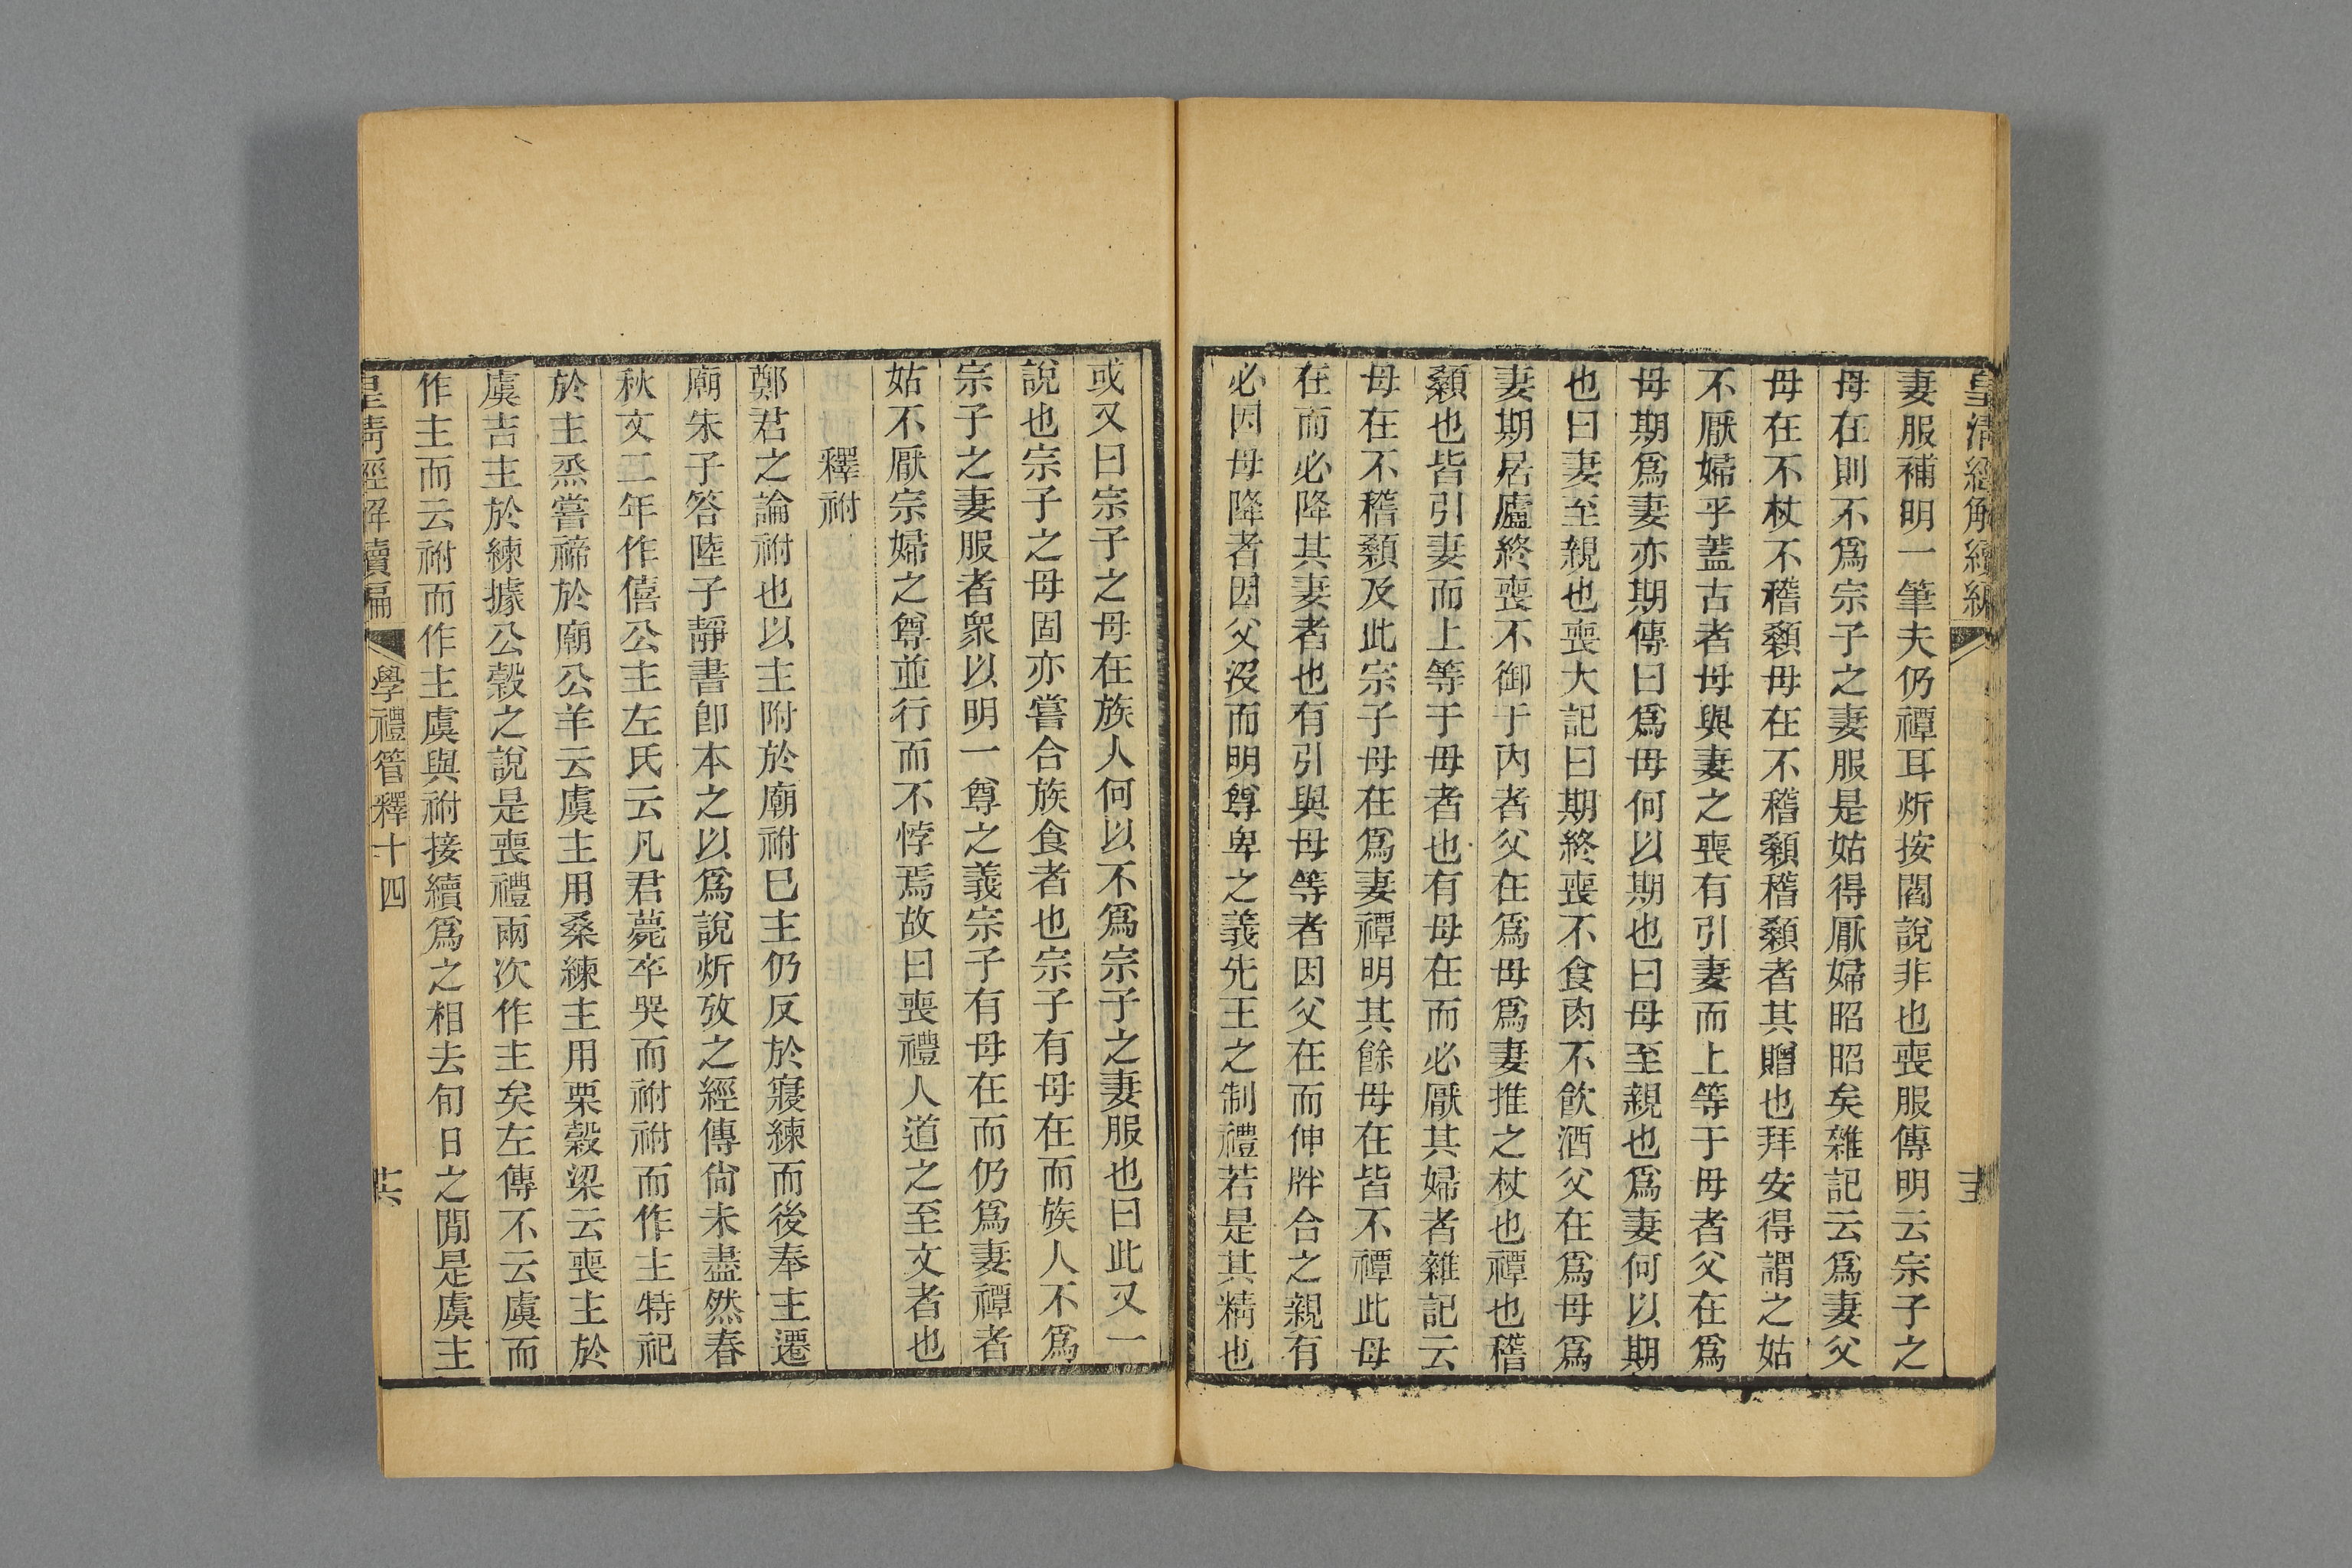 皇清經解續編
妻服補明一筆夫仍禫耳炘按閻說非也喪服傳明云宗子之
母在則不爲宗子之妻服是姑得厭婦昭昭矣雜記云爲妻父
母在不杖不稽顙母在不稽顙稽顙者其贈也拜安得謂之姑
不厭婦乎蓋古者母與妻之喪有引妻而上等于母者父在爲
母期爲妻亦期傳曰爲母何以期也曰母至親也爲妻何以期
也曰妻至親也喪大記曰期終喪不食肉不飲酒父在爲母爲
妻期居廬終喪不御于內者父在爲母爲妻推之杖也禫也稽
顙也皆引妻而上等于母者也有母在而必厭其婦者雜記云
母在不稽顙及此宗子母在爲妻禫明其餘母在皆不禫此母
在而必降其妻者也有引與母等者因父在而伸牉合之親有
必因母降者因父沒而明尊卑之義先王之制禮若是其精也
或又曰宗子之母在族人何以不爲宗子之妻服也曰此又一
說也宗子之母固亦嘗合族食者也宗子有母在而族人不爲
宗子之妻服者衆以明一尊之義宗子有母在而仍爲妻禫者
姑不厭宗婦之尊並行而不悖焉故曰喪禮人道之至文者也
釋祔
鄭君之論祔也以主附於廟祔已主仍反於寢練而後奉主遷
廟朱子答陸子靜書卽本之以爲說炘攷之經傳尙未盡然春
秋文二年作僖公主左氏云凡君薨卒哭而祔祔而作主特祀
於主烝嘗禘於廟公羊云虞主用桑練主用栗穀梁云喪主於
虞吉主於練據公穀之說是喪禮兩次作主矣左傳不云虞而
作主而云祔而作主虞與祔接續爲之相去旬日之閒是虞主
皇清經解續編
學禮管釋十四